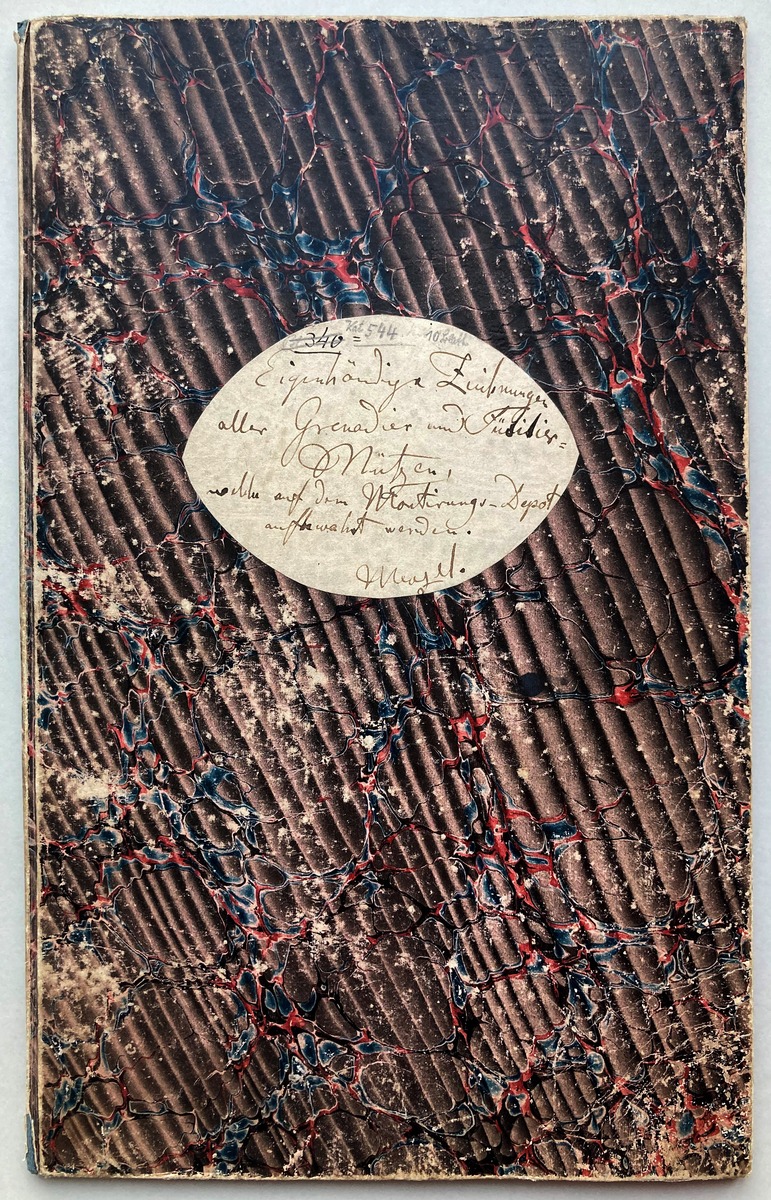 340 = Kat 544 10 Blatt
Eigenhändige Zeichnungen
aller Grenadier und Füsilier=
Mützen,
welche auf dem Montirungs-Depot
aufbewahrt werden.
Menzel.